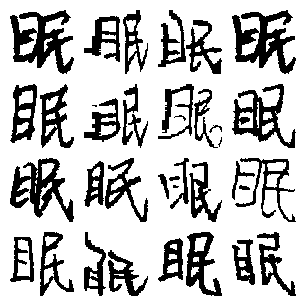 眠眠眠眠
眠眠眠眠
眠眠眠眠
眠眠眠眠